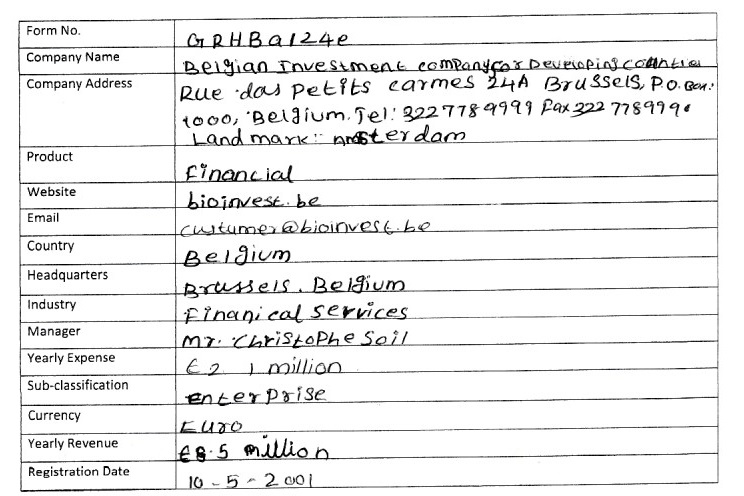 Form No. GRHBa124e
Company Name Belgian Investment company for Developing countries
Company Address Rue das Petits carmes 24A Brussels, P.O. Box:
1000, Belgium. Tel: 322 778 9999 Fax 322 778999.
Landmark: Amsterdam
Product Financial
Website bioinvest.be
Email custumer@bioinvest.be
Country Belgium
Headquarters Brussels, Belgium
Industry Finanical services
Manager Mr. Christophe Soil
Yearly Expense € 2.1 million
Sub-classification enterprise
Currency Euro
Yearly Revenue €8.5 million
Registration Date 10-5-2001